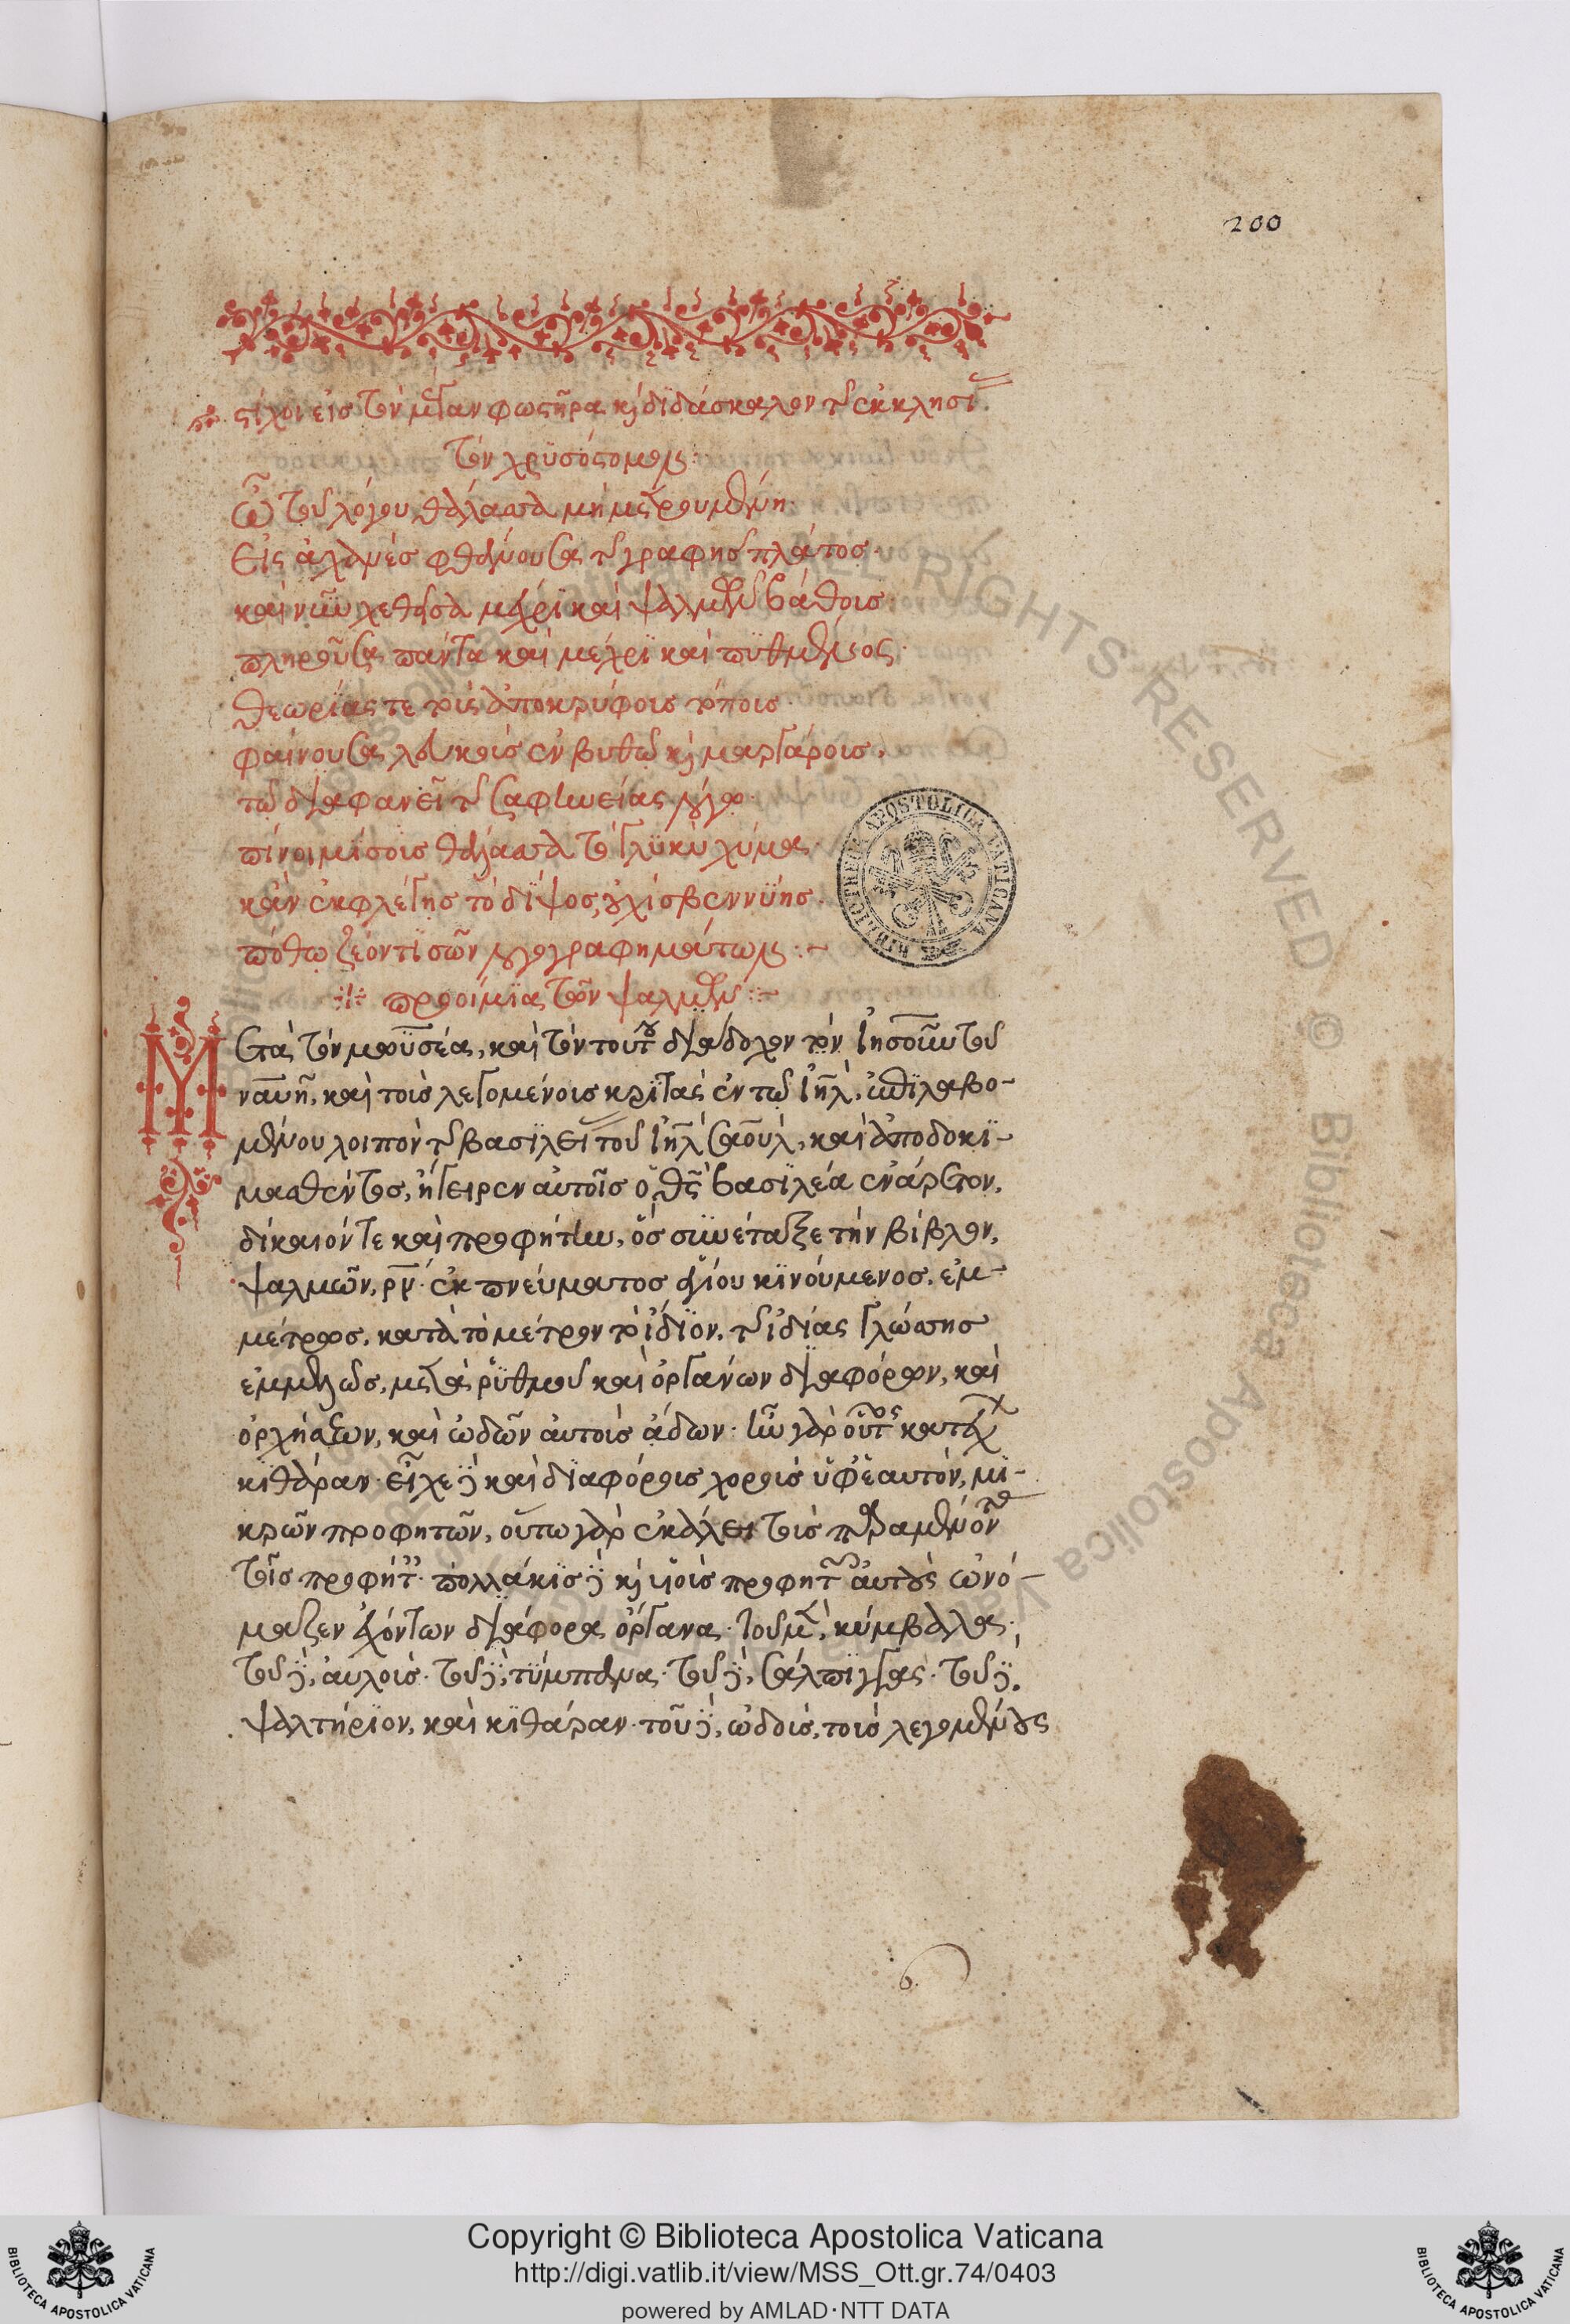 200
στίχοι εἰς τὸν μέγαν φωστῆρα κ̀ διδάσκαλον τῆς ἐκκλησί
τὸν χρϋσόστομον:
Ὦ τοῦ λόγου θάλασσα μὴ μετρουμένη·
Εἰς ἀχανὲς φθάνουσα τῆς γραφῆς πλάτος·
καὶ νῦν χεθεῖσα μέχρϊ καὶ ψαλμῶν βάθους
πληροῦσα πάντα καὶ μέχρϊ καὶ πϋθμένος·
θεωρίας τε τοὺς ἀποκρύφους τόπους
φαίνουσα λευκοῖς ἐν βυθῷ κ̀ μαργάροις·
τῷ διαφανεῖ τῆς σαφηνείας λόγῳ·
πίνοιμί σοις θάλασσα τὸ γλϋκὺ χύμα·
κἂν ἐκφλέγης τὸ δίψος, οὐχὶ σβεννύης·
πόθῳ ζέοντι σῶν λογογραφημάτων:~
προοίμϊα τῶν ψαλμῶν:~
Μετὰ τὸν μωϋσέα, καὶ τὸν τούτου διάδοχον τὸν Ἰησοῦν τοῦ
ναυῆ, καὶ τοὺς λεγομένους κρϊτὰς ἐν τῷ ἰηλ, ἐπϊλαβο-
μένου λοιπὸν τῆς βασϊλεί τοῦ ἰηλ σαοὺλ, καὶ ἀποδοκϊ-
μασθέντος, ἤγειρεν αὐτοῖς ὁ θς βασϊλέα ἐνάρετον,
δίκαιόν τε καὶ προφήτην, ὃς συνέταξε τὴν βίβλον,
ψαλμῶν, ρν· ἐκ πνεύματος ἁγίου κϊνούμενος. ἐμ-
μέτρως, κατὰ τὸ μέτρον τὸ ἴδϊον, τῆς ἰδίας γλώσσης
ἐμμελῶς, μετὰ ῥϋθμοῦ καὶ ὀργάνων διαφόρων, καὶ
ὀρχήσεων, καὶ ᾠδῶν αὐτοὺς ᾄδων· ἦν γὰρ οὗτος κατέχ
κϊθάραν· εἶχε δὲ καὶ δϊαφόρους χοροὺς ὑφ' ἑαυτόν, μϊ-
κρῶν προφητῶν, οὕτω γὰρ ἐκάλει τοὺς παραμένοντ
τοῖς προφήτ· πολλάκϊς δὲ κ̀ υἱοὺς προφητῶν αὐτοὺς ὠνό-
μαζεν ἐχόντων διάφορα ὄργανα· τοῦ μὲν, κύμβαλα·
τοῦ δὲ, αὐλοὺς· τοῦ δὲ, τύμπανα· τοῦ δὲ, σάλπϊγγας· τοῦ δὲ.
ψαλτήρϊον, καὶ κϊθάραν· τοῦ δὲ, ᾠδοὺς, τοὺς λεγομένους
BIBLIOTHECA APOSTOLICA VATICANA
Copyright © Biblioteca Apostolica Vaticana
http://digi.vatlib.it/view/MSS_Ott.gr.74/0403
powered by AMLAD·NTT DATA
BIBLIOTECA APOSTOLICA VATICANA
BIBLIOTECA APOSTOLICA VATICANA